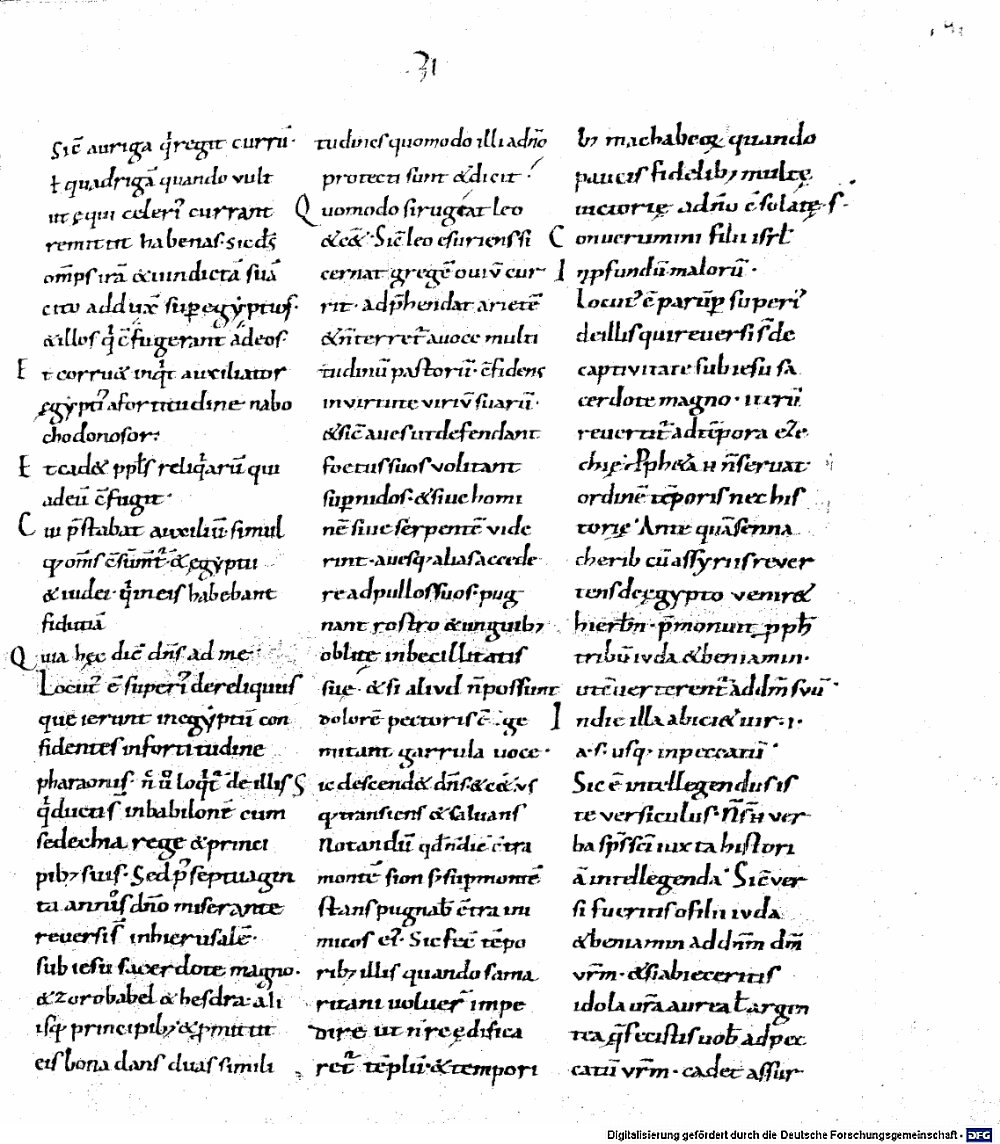 31
Sic̄ auriga q̇regit currū·
ł quadrigā quando vult
ut ęqui celeri᷒ currant
remittit habenas· sic dꝭ̄
om̄ps irā &uindictā suā
cito addux̄ sup egẏptios·
&illos q̇ c̄fugerant ad eos·
Et corru& inq̇t auxiliator
ęgẏpti᷒ afortitudine nabo
chodonosor:
Et cad& ppl̄s reliq̇arū qui
ad eū c̄fugit·
Cui p̄stabat auxiliū· simul
qꝫ om̄s c̄sum̄t᷒·& ęgẏptii
& iudei· q̇ ineis habebant
fiduciā
Quia hęc dic̄ dn̄s ad me·
Locut᷒ ē superi᷒ dereliquiis
que ierunt inegẏptū con
fidentes infortitudine
pharaonis· n̄ ů loq̇t᷒ de illis
q̇ ducti s̄ inbabilonē cum
sedechia rege & princi
pibꝫ suis· Sed p᷒ septuagin
ta annos dn̄o miserante
reversi s̄ inhierusalē·
sub iesu sacerdote magno·
& zorobabel & hesdra· ali
isqꝫ principibꝫ· &pmittit
eis bona dans duas simili
tudines quomodo illi ad n̄o
protecti sunt & dicit·
Quomodo si rugeat leo
&c&· Sic̄ leo esuriens si
cernat gregē ouiū cur
rit· adp̄hendat arietē
& n̄ terret᷒ a uoce multi
tudinū pastorū· c̄fidens
invirtute viriū suarū·
& sic̄ aues ut defendant
foetus suos volitant
sup nidos· & siue homi
nē siue serpentē vide
rint· auesqꝫ alias accede
re ad pullos suos· pug
nant rostro & unguibꝫ
oblitę inbecillitatis
suę· & si aliud n̄ possunt
dolorē pectoris c̄ ge
mitant garrula uoce·
Sic descend& dn̄s· &c&· vs
qꝫ transiens & saluans
Notandū qd̄ n̄ dic̄ c̄tra
montē sion s; sup montē
stans pugnab̄ c̄tra ini
micos ei᷒· Sic fec̄ tēpo
ribꝫ illis quando sama
ritani uoluer̄ impe
dire ut n̄ reędifica
ret᷒ tēplū· & tempori
bꝫ machabeoꝝ quando
paucis fidelibꝫ multę
uictorię adn̄o c̄solatę· s·
Conuertimini filii isrl̄
In pfundū malorū·
Locut᷒ ē parūp superi᷒
de illis qui reuersi s̄ de
captivitate sub iesu sa
cerdote magno· iterū
revertit᷒ ad tēpora eze
chię· Ppheta ħ n̄ seruat
ordinē tēporis nec his
torię· Ante quā senna
cherib cū assyriis rever
tens de ęgypto venir&
hierlm̄· p̄monuit pph̄
tribū iuda & beniamin·
ut c̄uerterent᷒ ad dm̄ suū·
In die illa abici& uir·i·
a·s· usqꝫ in peccatū·
Sic ē intellegendus is
te versiculus· N̄ s̄ ħ ver
ba sp̄s sc̄i iuxta histori
ā intellegenda· Sic̄ ver
si fueritis o filii iuda
& beniamin ad dn̄m dm̄
vr̄m· & si abieceritis
idola ur̄a aurea ł argen
tea q̄ fecistis uob̄ ad pec
catū vr̄m· cadet assur
Digitalisierung gefördert durch die Deutsche Forschungsgemeinschaft - DFG